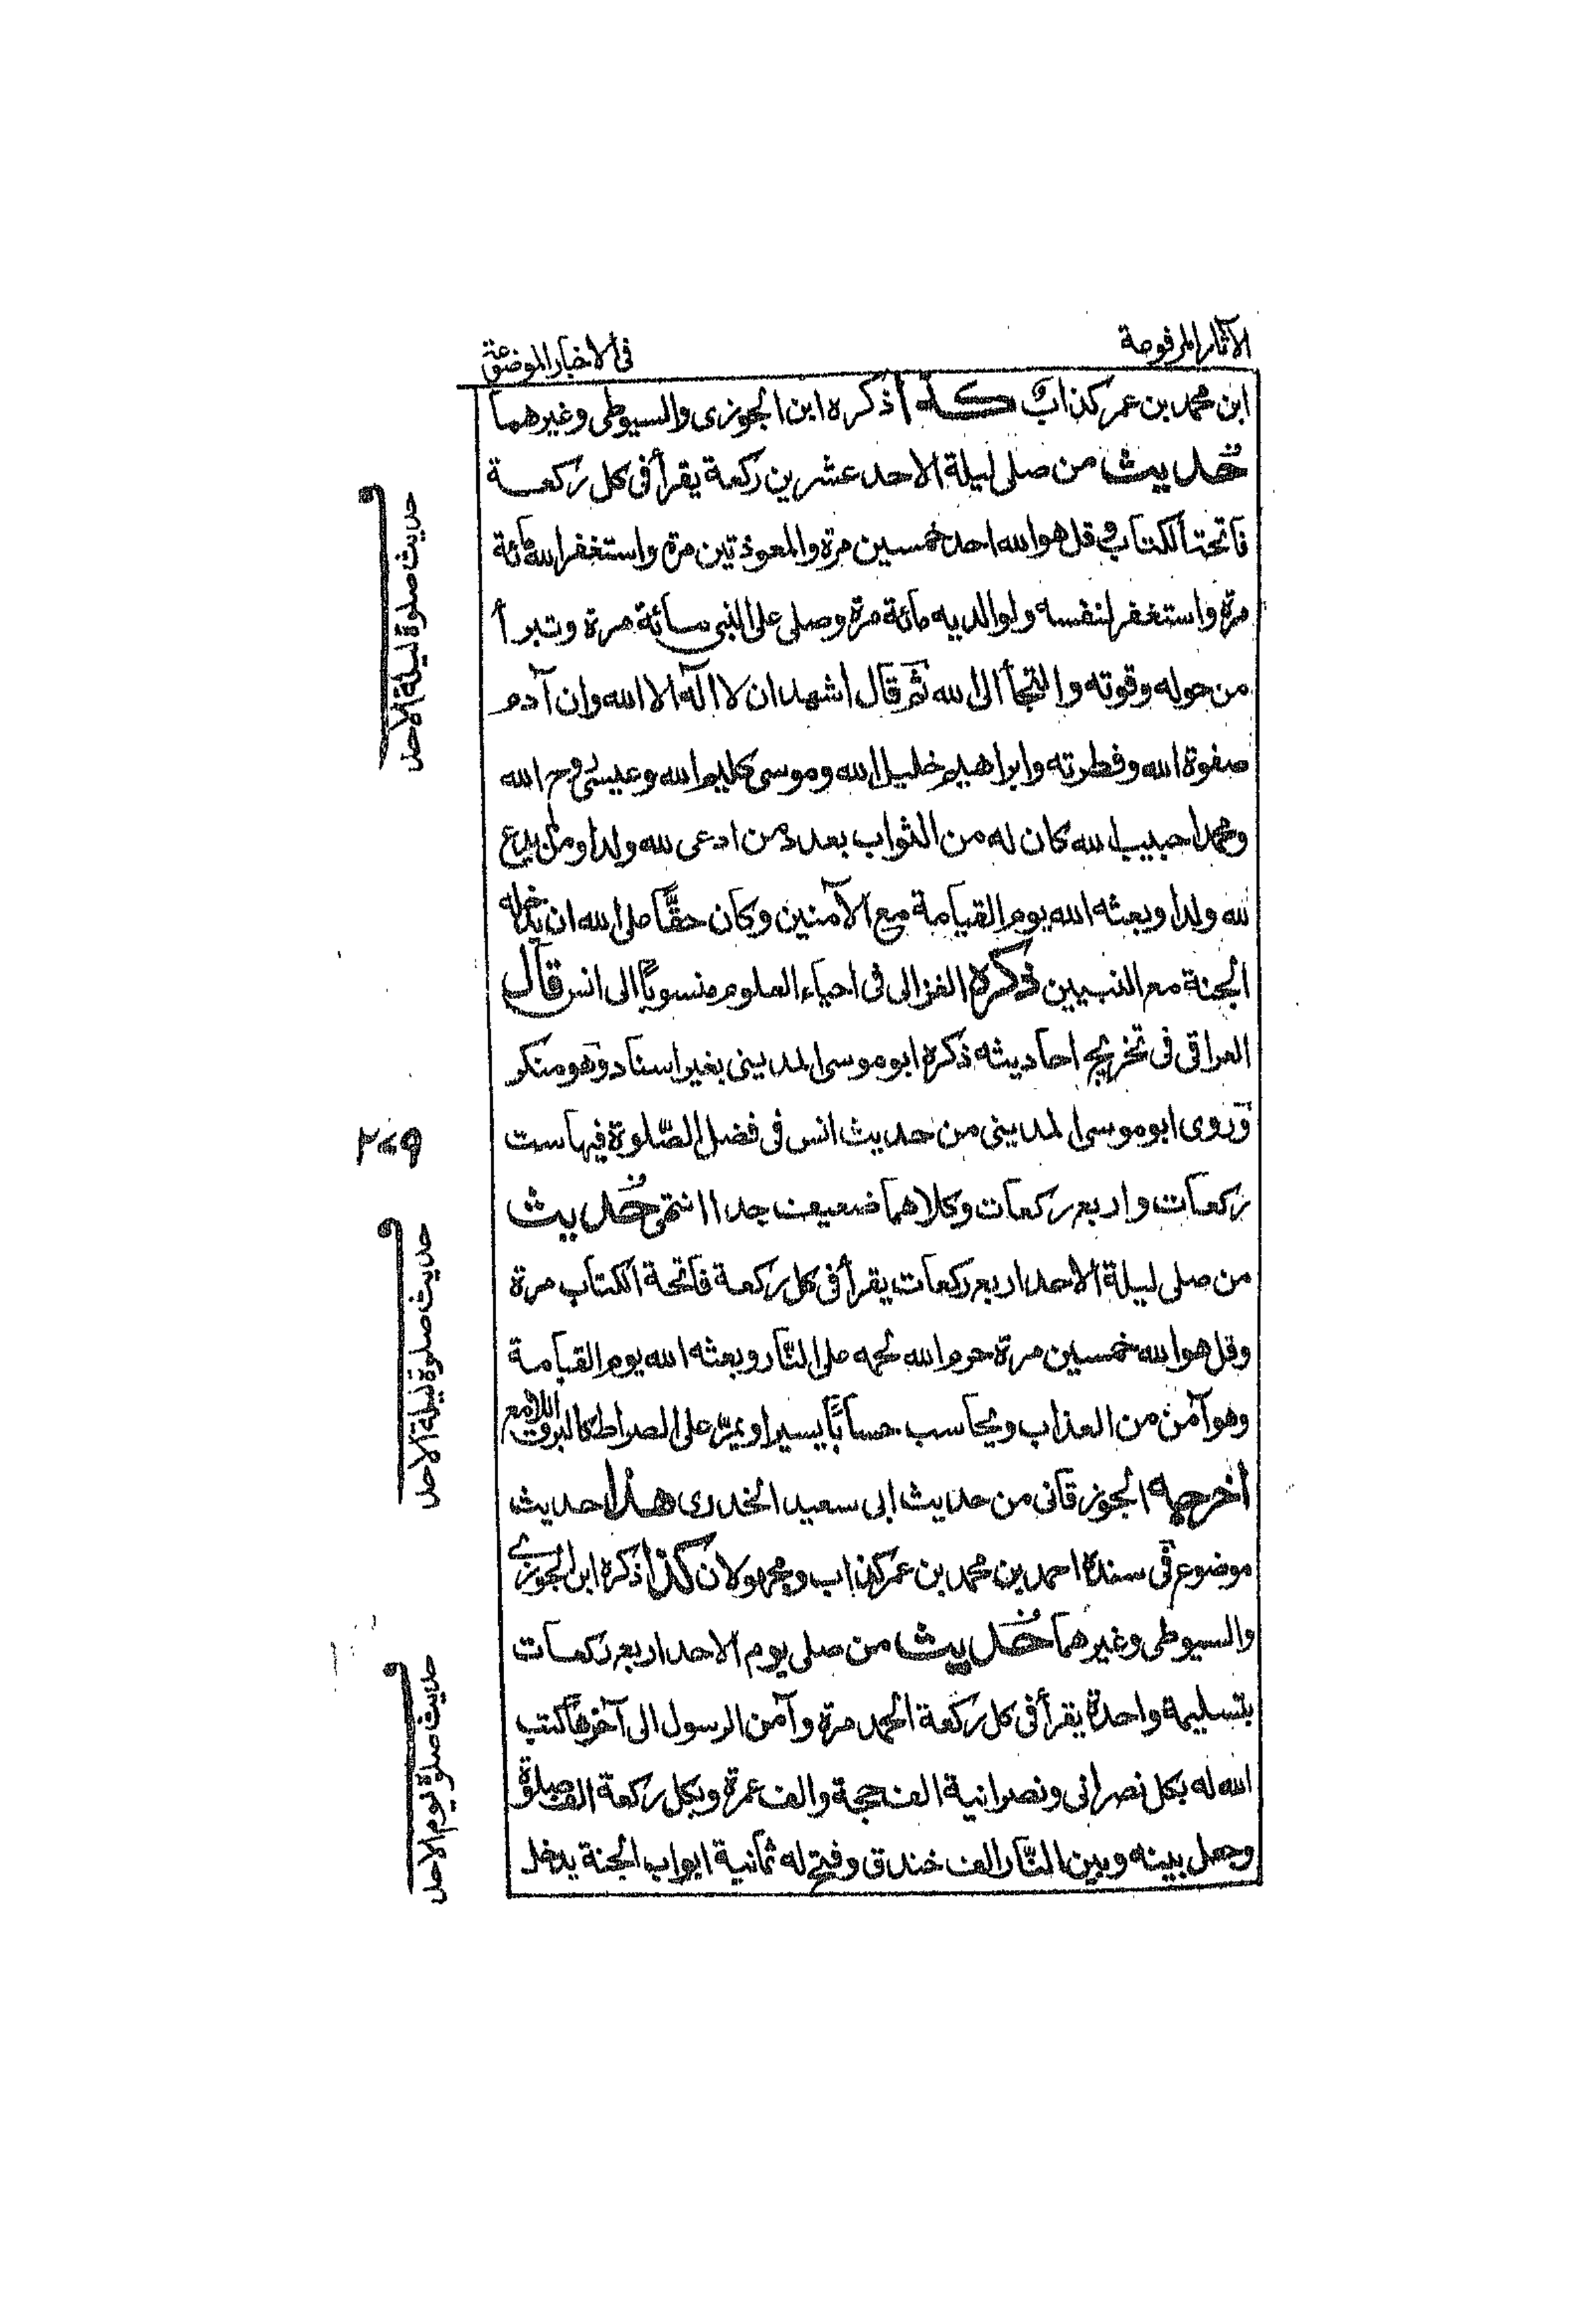 الآثار المرفوعة
في الاخبار الموضوعة
ابن محمد بن عمر كذاب كذا ذكره ابن الجوزى والسيوطى وغيرهما
حديث من صلى ليلة الاحد عشرين ركعة يقرأ فى كل ركعة
فاتحة الكتاب وقل هو الله احد خمسين مرة والمعوذتين مرة واستغفر الله مائة
مرة واستغفر لنفسه ولوالديه مائة مرة وصلى على النبى مائة مرة وتبرأ
من حوله وقوته والتجأ الى الله ثم قال اشهد ان لا اله الا الله وان آدم
صفوة الله وفطرته وابراهيم خليل الله وموسى كليم الله وعيسى روح الله
ومحمدا حبيب الله كان له من الثواب بعدد من ادعى لله ولدا ومن لم يدع
لله ولدا وبعثه الله يوم القيامة مع الآمنين وكان حقًّا على الله ان يدخله
الجنة مع النبيين ذكره الغزالى فى احياء العلوم منسوبًا الى انس قال
العراقى فى تخريج احاديثه ذكره ابو موسى المدينى بغير اسناد وهو منكر
وروى ابو موسى المدينى من حديث انس فى فضل الصّلوة فيها ست
ركعات واربع ركعات وكلاهما ضعيف جدا انتهى حديث
من صلى ليلة الاحد اربع ركعات يقرأ فى كل ركعة فاتحة الكتاب مرة
وقل هو الله خمسين مرة حرم الله لحمه على النّار وبعثه الله يوم القيامة
وهو آمن من العذاب ويحاسب حسابًا يسيرا ويمرّ على الصراط كالبرق اللامع
اخرجه الجوزقانى من حديث ابى سعيد الخدرى هذا حديث
موضوع فى سنده احمد بن محمد بن عمر كذاب ومجهولان كذا ذكره ابن الجوزى
والسيوطى وغيرهما حديث من صلى يوم الاحد اربع ركعات
بتسليمة واحدة يقرأ فى كل ركعة الحمد مرة وآمن الرسول الى آخرها كتب
الله له بكل نصرانى ونصرانية الف حجة والف عمرة وبكل ركعة الف صلوة
وجعل بينه وبين النّار الف خندق وفتح له ثمانية ابواب الجنة يدخل
حديث صلوة ليلة الاحد
حديث صلوة ليلة الاحد
حديث صلوة يوم الاحد